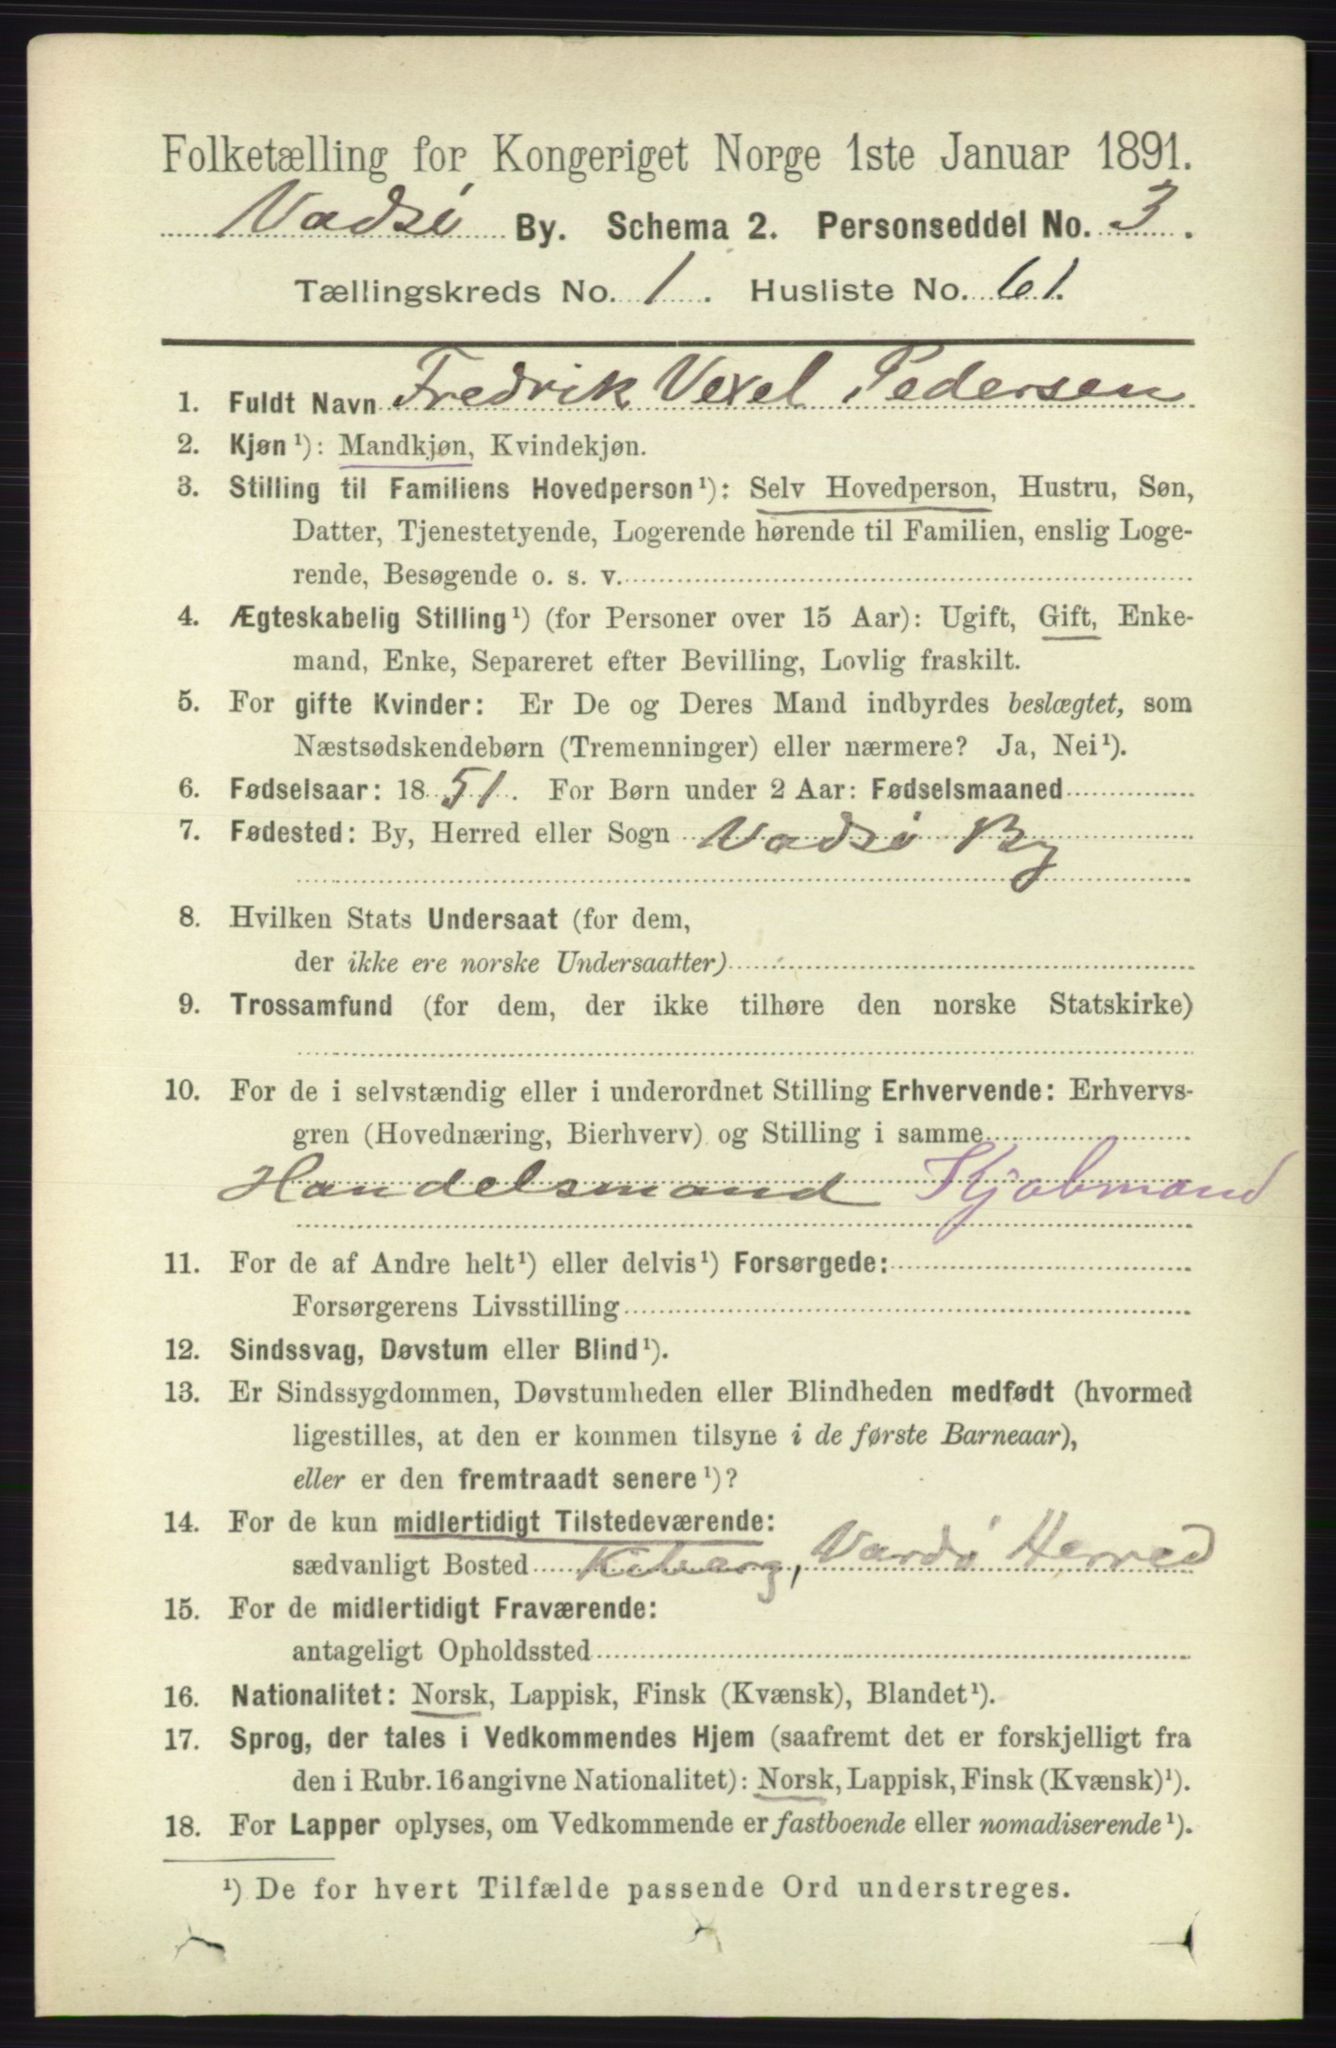 Folketælling for Kongeriget Norge 1ste Januar 1891.
Vadsö By. Schema 2. Personseddel No. 3.
Tællingskreds No. 1. Husliste No. 61.
1. Fuldt Navn Fredrik Vexel Pedersen
2. Kjøn¹): Mandkjøn, Kvindekjøn.
3. Stilling til Familiens Hovedperson¹): Selv Hovedperson, Hustru, Søn,
Datter, Tjenestetyende, Logerende hørende til Familien, enslig Loge-
rende, Besøgende o. s. v.
4. Ægteskabelig Stilling¹) (for Personer over 15 Aar): Ugift, Gift, Enke-
mand, Enke, Separeret efter Bevilling, Lovlig fraskilt.
5. For gifte Kvinder: Er De og Deres Mand indbyrdes beslægtet, som
Næstsødskendebørn (Tremenninger) eller nærmere? Ja, Nei¹).
6. Fødselsaar: 1851. For Børn under 2 Aar: Fødselsmaaned
7. Fødested: By, Herred eller Sogn Vadsö By
8. Hvilken Stats Undersaat (for dem,
der ikke ere norske Undersaatter)
9. Trossamfund (for dem, der ikke tilhøre den norske Statskirke)
10. For de i selvstændig eller i underordnet Stilling Erhvervende: Erhvervs-
gren (Hovednæring, Bierhverv) og Stilling i samme
Handelsmand Kjøbmand
11. For de af Andre helt¹) eller delvis¹) Forsørgede:
Forsørgerens Livsstilling
12. Sindssvag, Døvstum eller Blind¹).
13. Er Sindssygdommen, Døvstumheden eller Blindheden medfødt (hvormed
ligestilles, at den er kommen tilsyne i de første Barneaar),
eller er den fremtraadt senere¹)?
14. For de kun midlertidigt Tilstedeværende:
sædvanligt Bosted Kiberg, Vardö Herred
15. For de midlertidigt Fraværende:
antageligt Opholdssted
16. Nationalitet: Norsk, Lappisk, Finsk (Kvænsk), Blandet¹).
17. Sprog, der tales i Vedkommendes Hjem (saafremt det er forskjelligt fra
den i Rubr. 16 angivne Nationalitet): Norsk, Lappisk, Finsk (Kvænsk)¹).
18. For Lapper oplyses, om Vedkommende er fastboende eller nomadiserende¹).
¹) De for hvert Tilfælde passende Ord understreges.